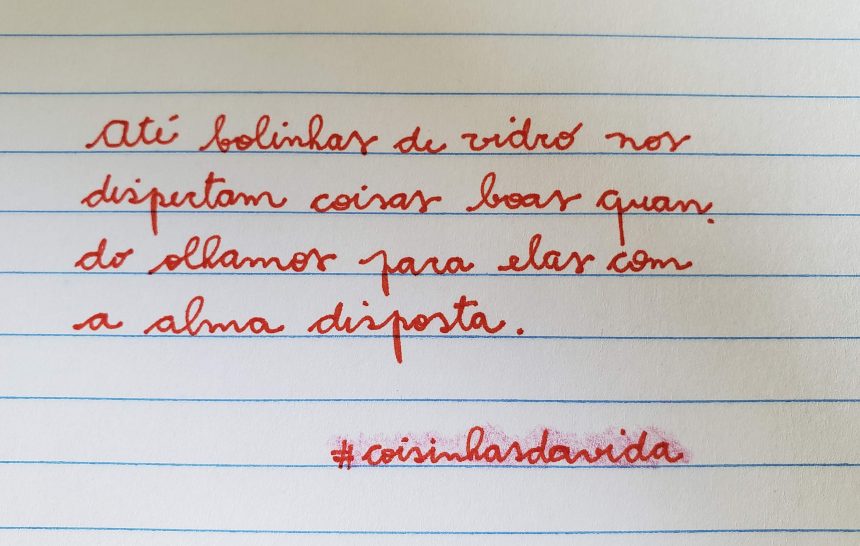 Até bolinhas de vidro nos
despertam coisas boas quan.
do olhamos para elas com
a alma disposta.
#coisinhasdavida